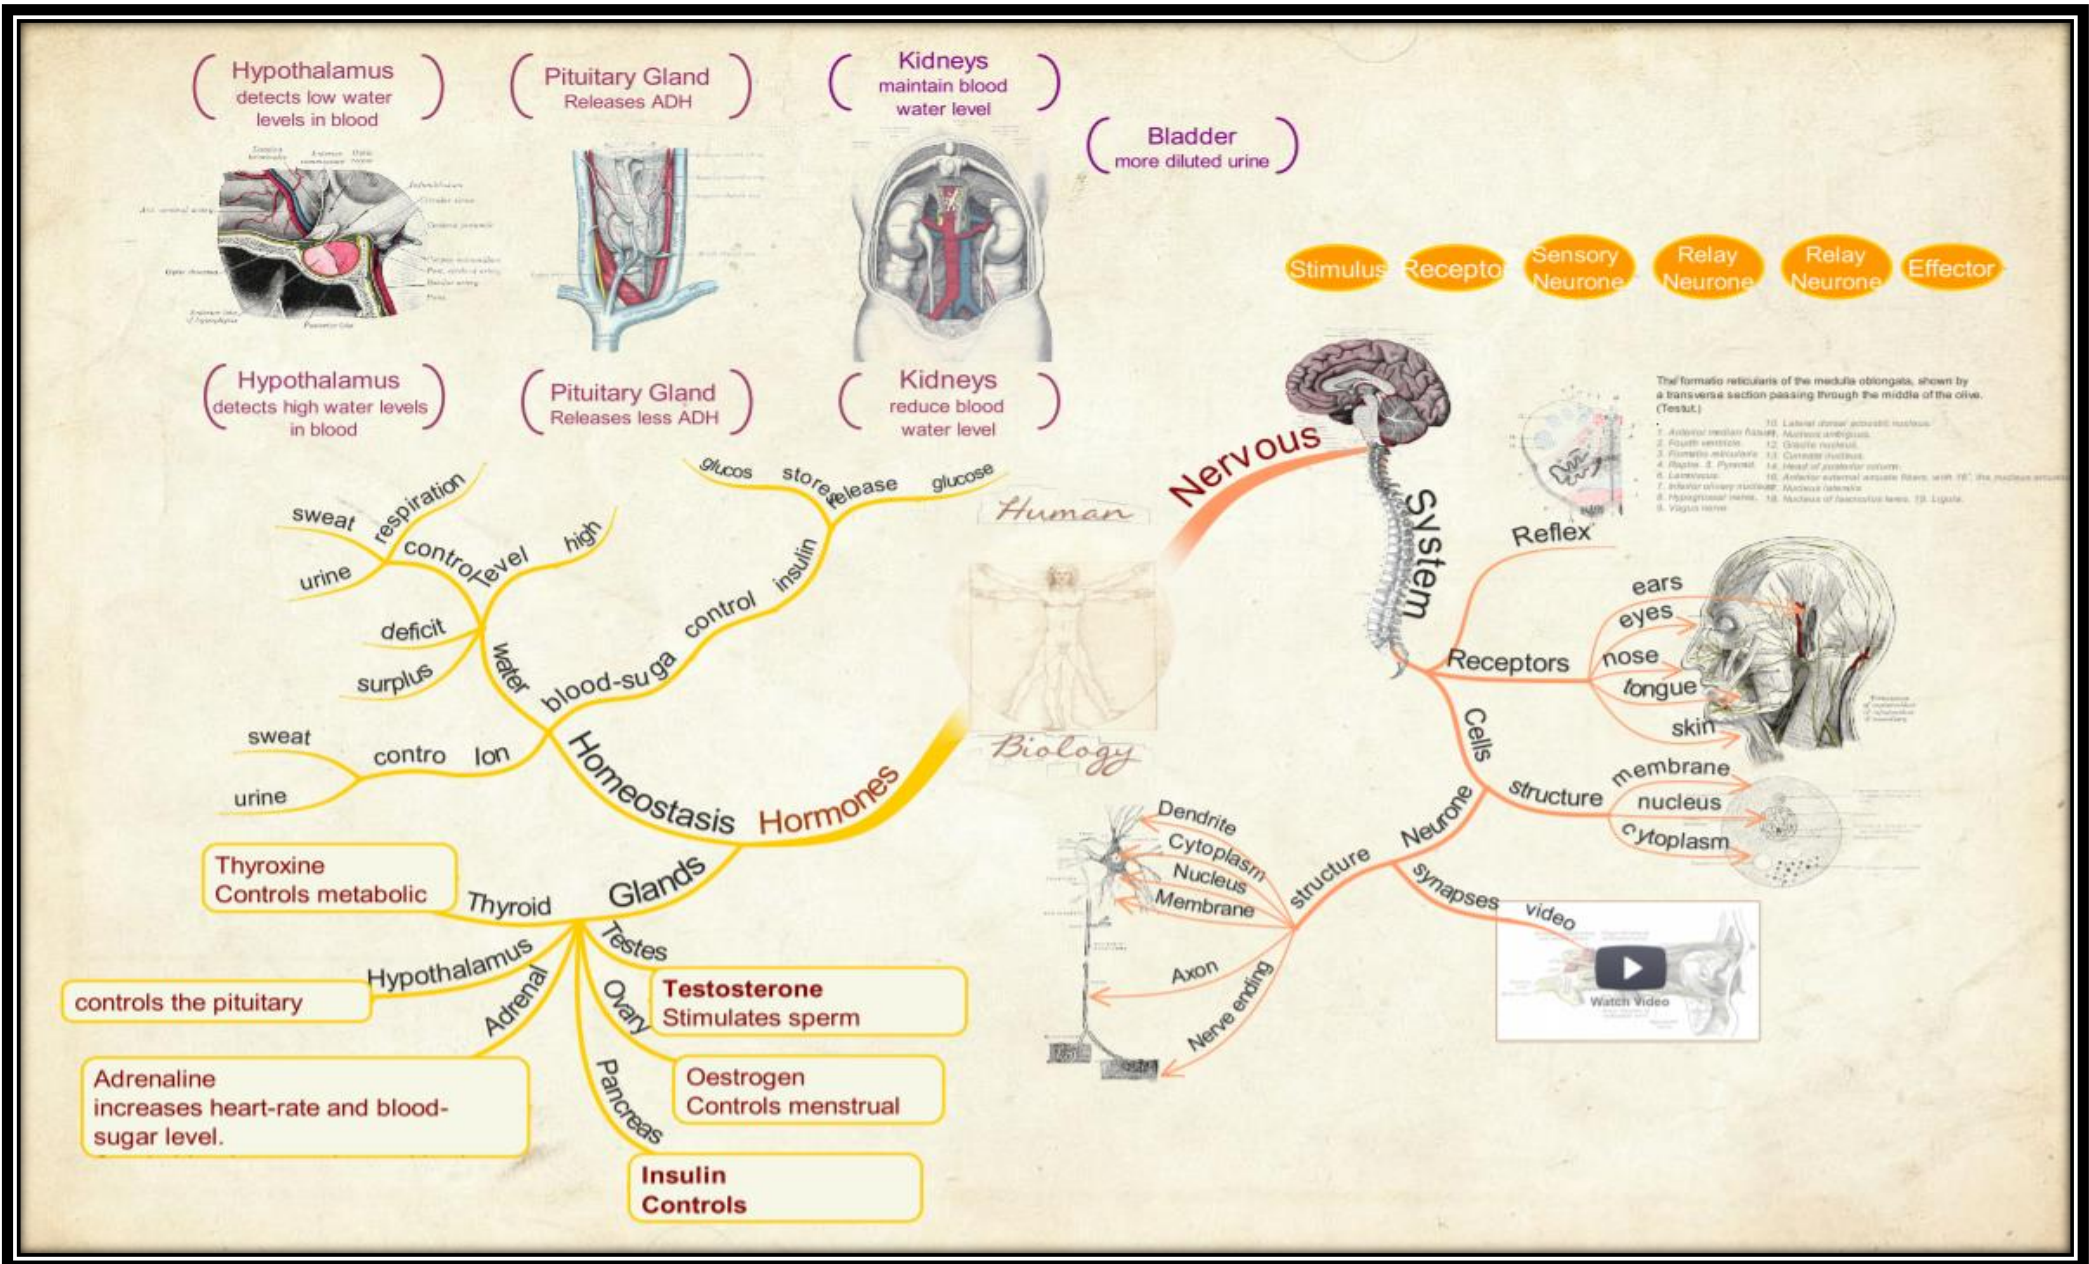 Hypothalamus
detects low water
levels in blood
Pituitary Gland
Releases ADH
Kidneys
maintain blood
water level
Bladder
more diluted urine
Hypothalamus
detects high water levels
in blood
Pituitary Gland
Releases less ADH
Kidneys
reduce blood
water level
Stimulus
Recepto
Sensory
Neurone
Relay
Neurone
Relay
Neurone
Effector
The formatio reticularis of the medulla oblongata, shown by
a transverse section passing through the middle of the olive.
(Testut.)
Human
Biology
Nervous
System
Reflex
Receptors
ears
eyes
nose
tongue
skin
Cells
structure
membrane
nucleus
cytoplasm
Neurone
synapses
video
Watch Video
structure
Dendrite
Cytoplasm
Nucleus
Membrane
Axon
Nerve ending
Hormones
Homeostasis
water
level
high
control
respiration
sweat
urine
deficit
surplus
blood-suga
control
insulin
store
glucos
release
glucose
Ion
contro
sweat
urine
Glands
Thyroid
Thyroxine
Controls metabolic
Hypothalamus
controls the pituitary
Adrenal
Adrenaline
increases heart-rate and blood-
sugar level.
Testes
Testosterone
Stimulates sperm
Ovary
Oestrogen
Controls menstrual
Pancreas
Insulin
Controls